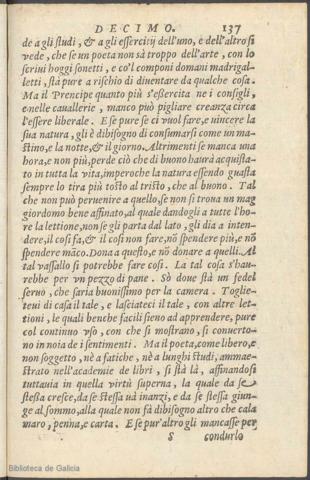 DECIMO. 137
de a gli studi, & a gli essercitij dell'uno, e dell'altro si
vede, che se un poeta non sà troppo dell'arte, con lo
scriui hoggi sonetti, e co'l componi domani madrigal-
letti, stà pure a rischio di diuentare da qualche cosa.
Ma il Prencipe quanto più s'essercita ne i consigli,
e nelle cauallerie, manco può pigliare creanza circa
l'essere liberale. E se pure se ci vuol fare, e uincere la
sua natura, gli è dibisogno di consumarsi come un ma-
stino, e la notte, & il giorno. Altrimenti se manca una
hora, e non più, perde ciò che di buono haurà acquista-
to in tutta la vita, imperoche la natura essendo guasta
sempre lo tira più tosto al tristo, che al buono. Tal
che non può peruenire a quello, se non si troua un mag
giordomo bene affinato, al quale dandogli a tutte l'ho-
re la lettione, non se gli parta dal lato, gli dia a inten-
dere, il così fa, & il così non fare, nō spendere più, e nō
spendere māco. Dona a questo, e nō donare a quelli. Al
tal vassallo si potrebbe fare così. La tal cosa s'hau-
rebbe per vn pezzo di pane. Sò donc stà un fedel
seruo, che saria buonissimo per la camera. Toglie-
teui di casa il tale, e lasciateci il tale, con altre let-
tioni, le quali benche facili sieno ad apprendere, pure
col continuo vso, con che si mostrano, si conuerto-
no in noia de i sentimenti. Ma il poeta, come libero, e
non soggetto, nè a fatiche, nè a lunghi studi, ammae-
strato nell'academie de libri, si stà là, affinandosi
tuttauia in quella virtù superna, la quale da se
stessa cresce, da se stessa uà inanzi, e da se stessa giun-
ge al sommo, alla quale non fà dibisogno altro che cala
maro, penna, e carta. E se pur'altro gli mancasse per
S condurlo
Biblioteca de Galicia